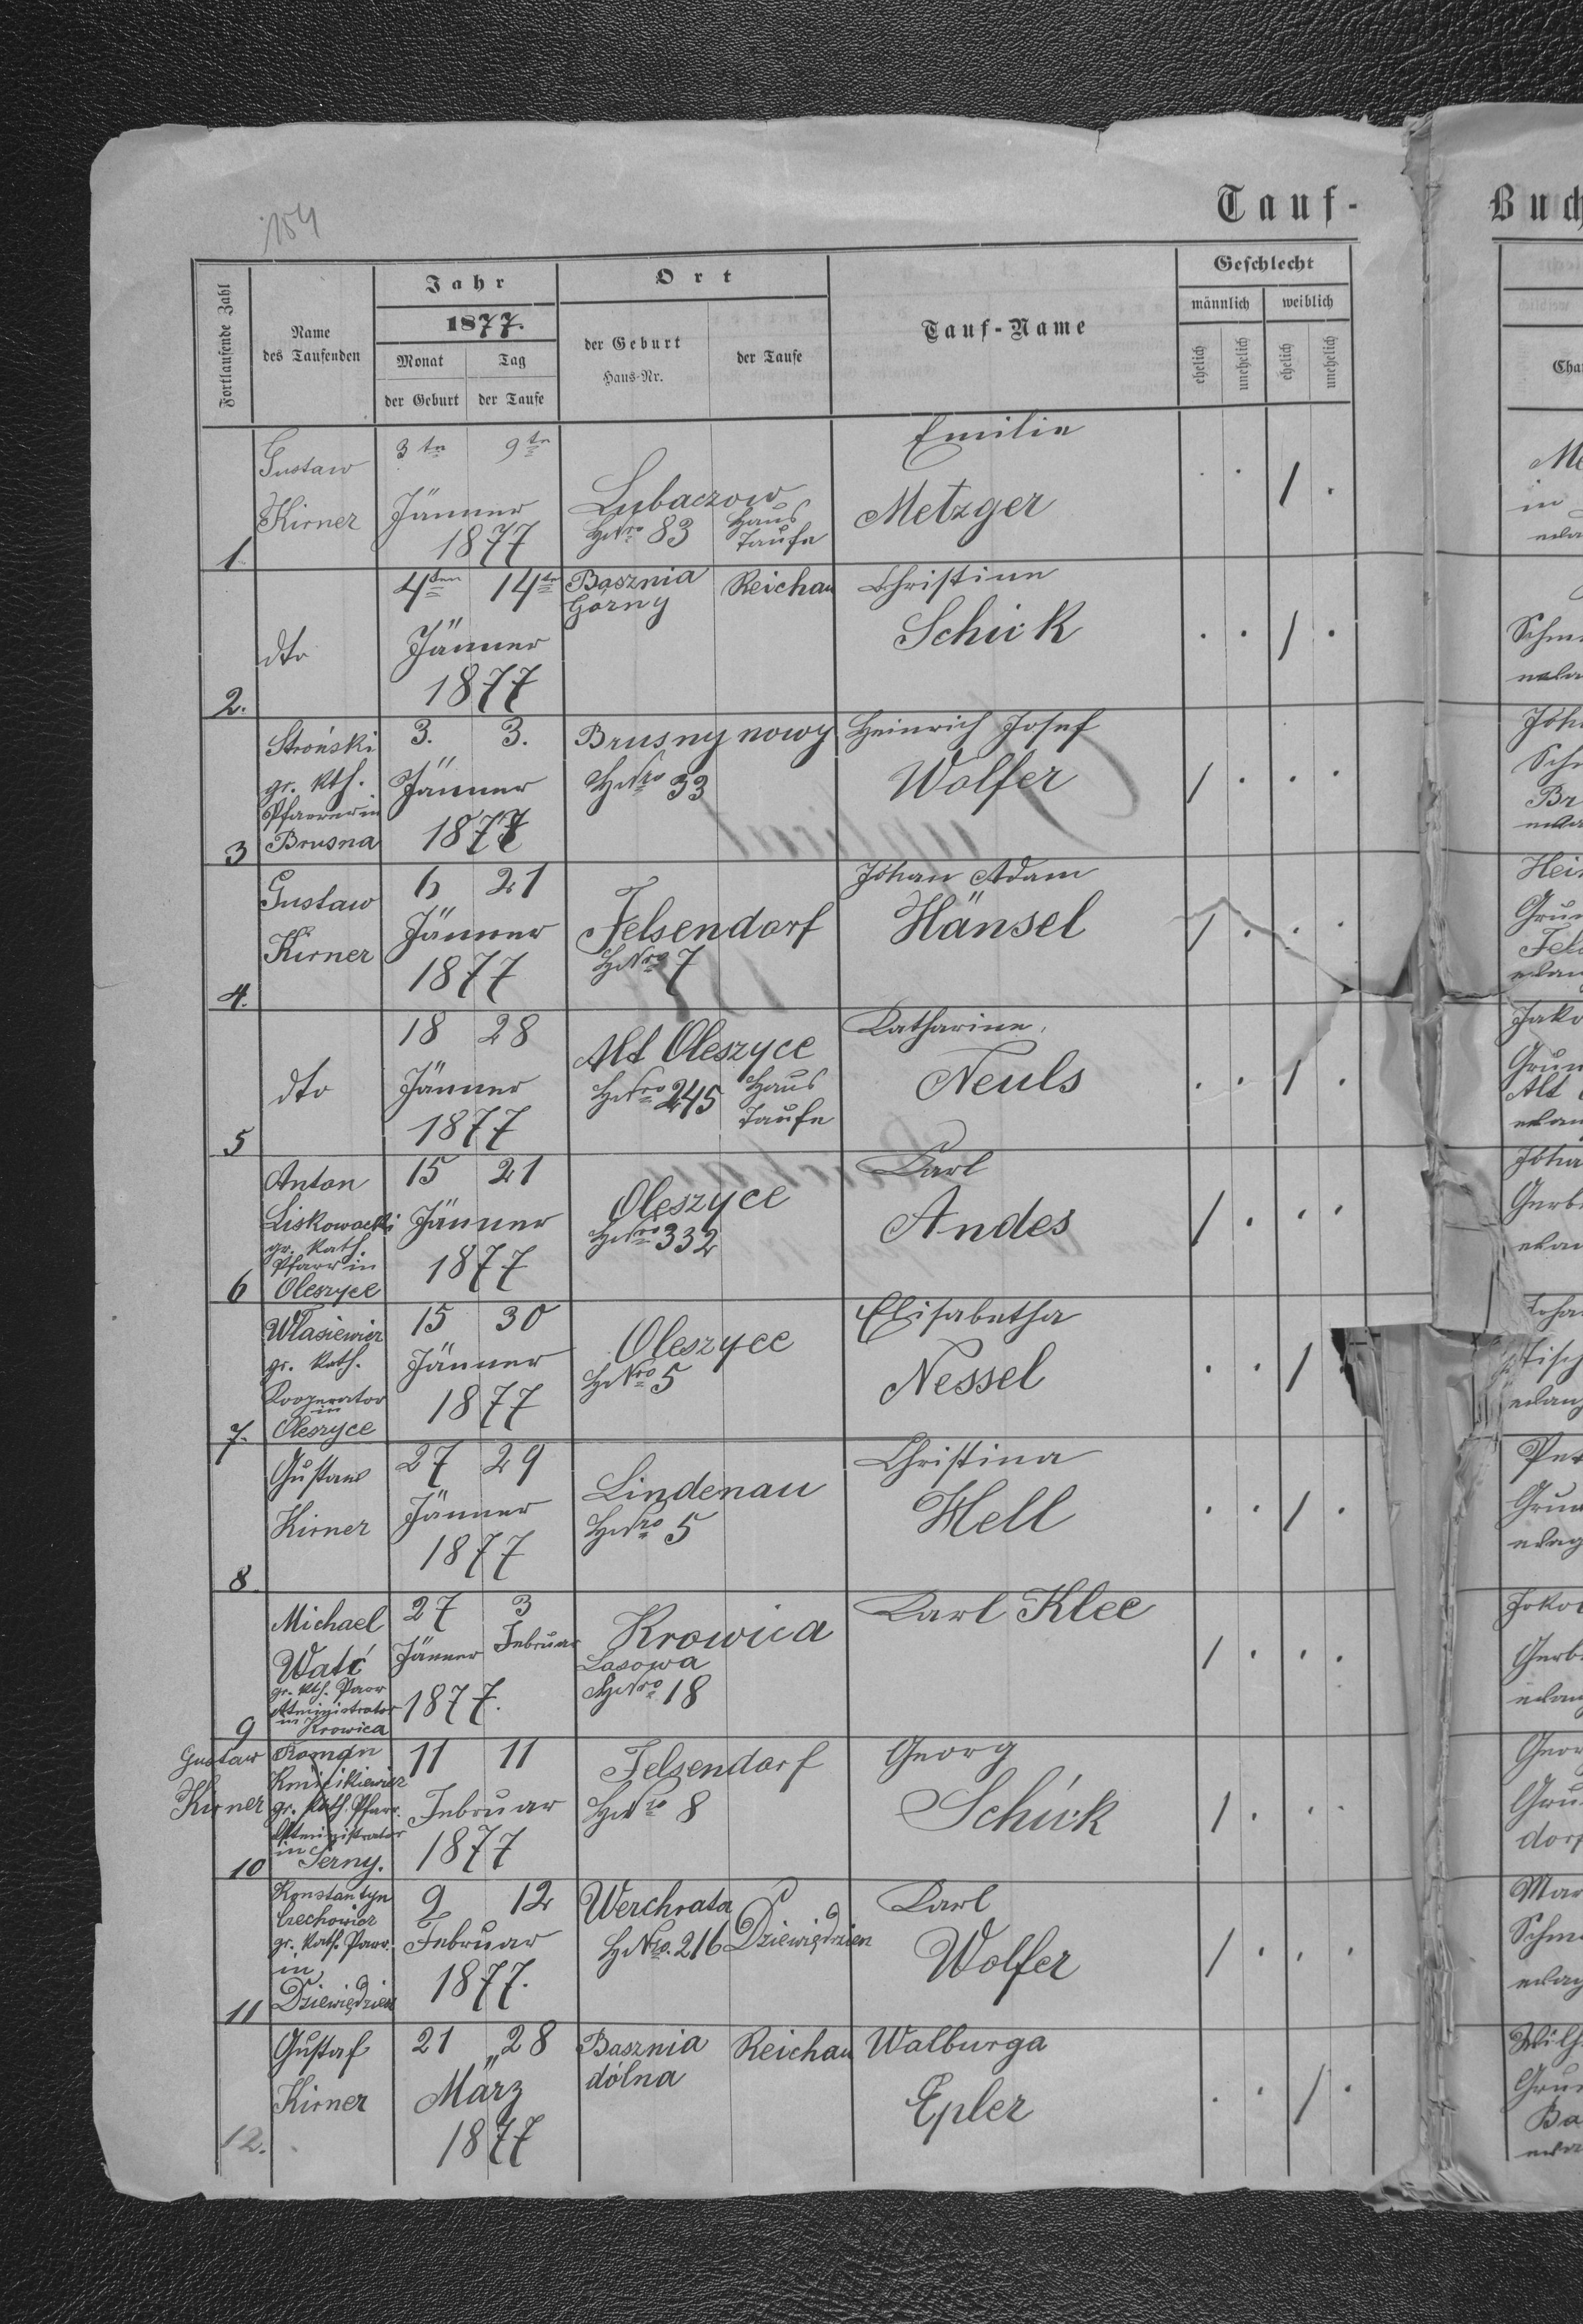 154
Tauf-
Buch
Fortlaufende Zahl
Name
des Taufenden
Jahr
1877.
Monat
Tag
der Geburt
der Taufe
Ort
der Geburt
Haus-Nr.
der Taufe
Tauf-Name
Geschlecht
männlich
weiblich
ehelich
unehelich
ehelich
unehelich
1.
Gustaw
Kirner
3ten 9ten
Jänner
1877
Lubaczow
HNro 83
Haus
Taufe
Emilie
Metzger
2.
dto
4ten 14ten
Jänner
1877
Basznia
Gorny
Reichau
Christine
Schick
3
Stroński
gr. kth.
Pfarrer in
Brusna
3. 3.
Jänner
1877
Brusny nowy
HNro 33
Heinrich Josef
Wolfer
4.
Gustaw
Kirner
6 21
Jänner
1877
Felsendorf
HNro 7
Johan Adam
Hänsel
5
dto
18 28
Jänner
1877
Alt Oleszyce
HNro 245
Haus
Taufe
Katharine.
Neuls
6
Anton
Liskowacki
gr. kath.
Pfarr in
Oleszyce
15 21
Jänner
1877
Oleszyce
HNro 332
Karl
Andes
7.
Własiewicz
gr. kath.
Kooperator
in
Oleszyce
15 30
Jänner
1877
Oleszyce
HNro 5
Elisabetha
Nessel
8.
Gustaw
Kirner
27 29
Jänner
1877
Lindenau
HNro 5
Christina
Hell
9
Michael
Watć
gr. kth. Parr
Administrator
in
Krowica
27 3
Jänner Februar
1877.
Krowica
Lasowa
HNro 18
Karl Klee
10
Gustaw
Kirner
Roman
gr. kath. Pfarr.
Administrator
in
Serny.
11 11
Februar
1877
Felsendorf
HNro 8
Georg
Schick
11
Konstantyn
Czechowicz
gr. kath. Parr.
in
Dziewiędzien
9 12
Februar
1877.
Werchrata
HNro. 216
Dziewiędzien
Karl
Wolfer
12.
Gustaf
Kirner
21 28
März
1877
Basznia
dólna
Reichau
Walburga
Epler